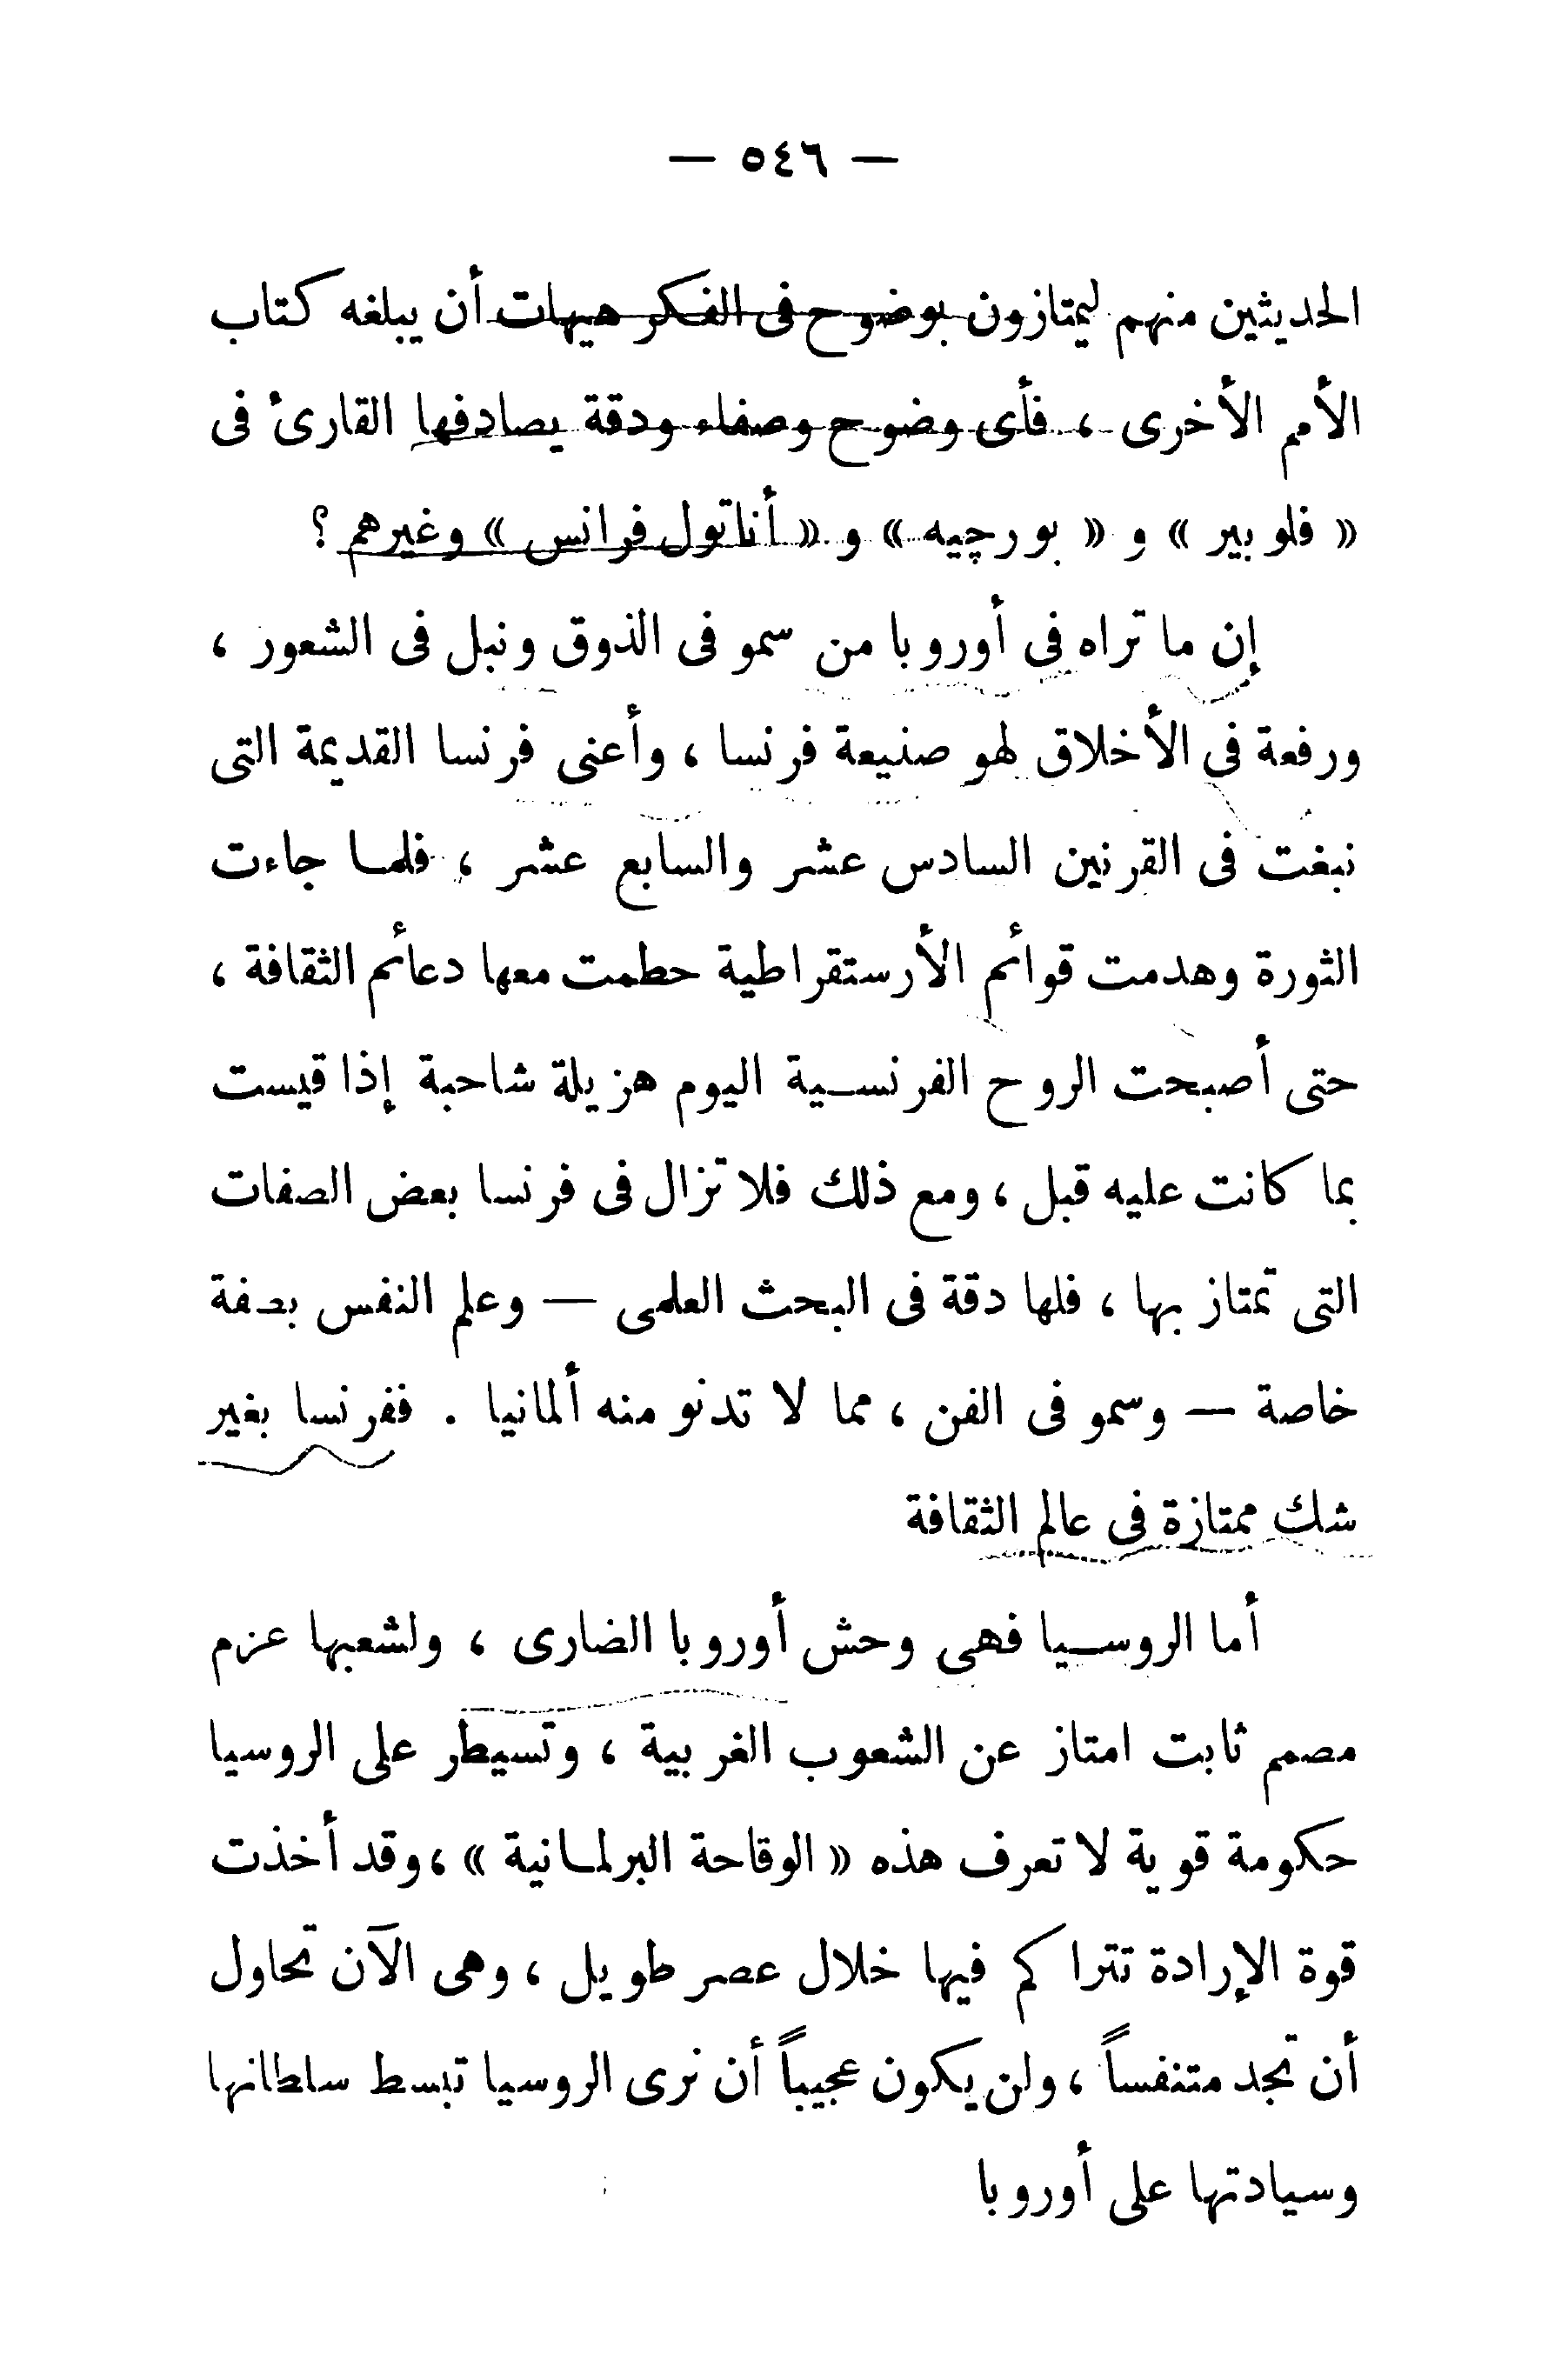 — ٥٤٦ —
الحديثين منهم ليمتازون بوضوح فى الفكر هيهات أن يبلغه كتاب
الأمم الأخرى ، فأى وضوح وصفاء ودقة يصادفها القارئ فى
« فلوبير » و « بورچيه » و « أناتول فرانس » وغيرهم ؟
إن ما تراه فى أوروبا من سمو فى الذوق ونبل فى الشعور ،
ورفعة فى الأخلاق لهو صنيعة فرنسا ، وأعنى فرنسا القديمة التى
نبغت فى القرنين السادس عشر والسابع عشر ، فلما جاءت
الثورة وهدمت قوائم الأرستقراطية حطمت معها دعائم الثقافة ،
حتى أصبحت الروح الفرنسية اليوم هزيلة شاحبة إذا قيست
بما كانت عليه قبل ، ومع ذلك فلا تزال فى فرنسا بعض الصفات
التى تمتاز بها ، فلها دقة فى البحث العلمى — وعلم النفس بصفة
خاصة — وسمو فى الفن ، مما لا تدنو منه ألمانيا . ففرنسا بغير
شك ممتازة فى عالم الثقافة
أما الروسيا فهى وحش أوروبا الضارى ، ولشعبها عزم
مصمم ثابت امتاز عن الشعوب الغربية ، وتسيطر على الروسيا
حكومة قوية لا تعرف هذه « الوقاحة البرلمانية » ، وقد أخذت
قوة الإرادة تتراكم فيها خلال عصر طويل ، وهى الآن تحاول
أن تجد متنفساً ، ولن يكون عجيباً أن نرى الروسيا تبسط سلطانها
وسيادتها على أوروبا